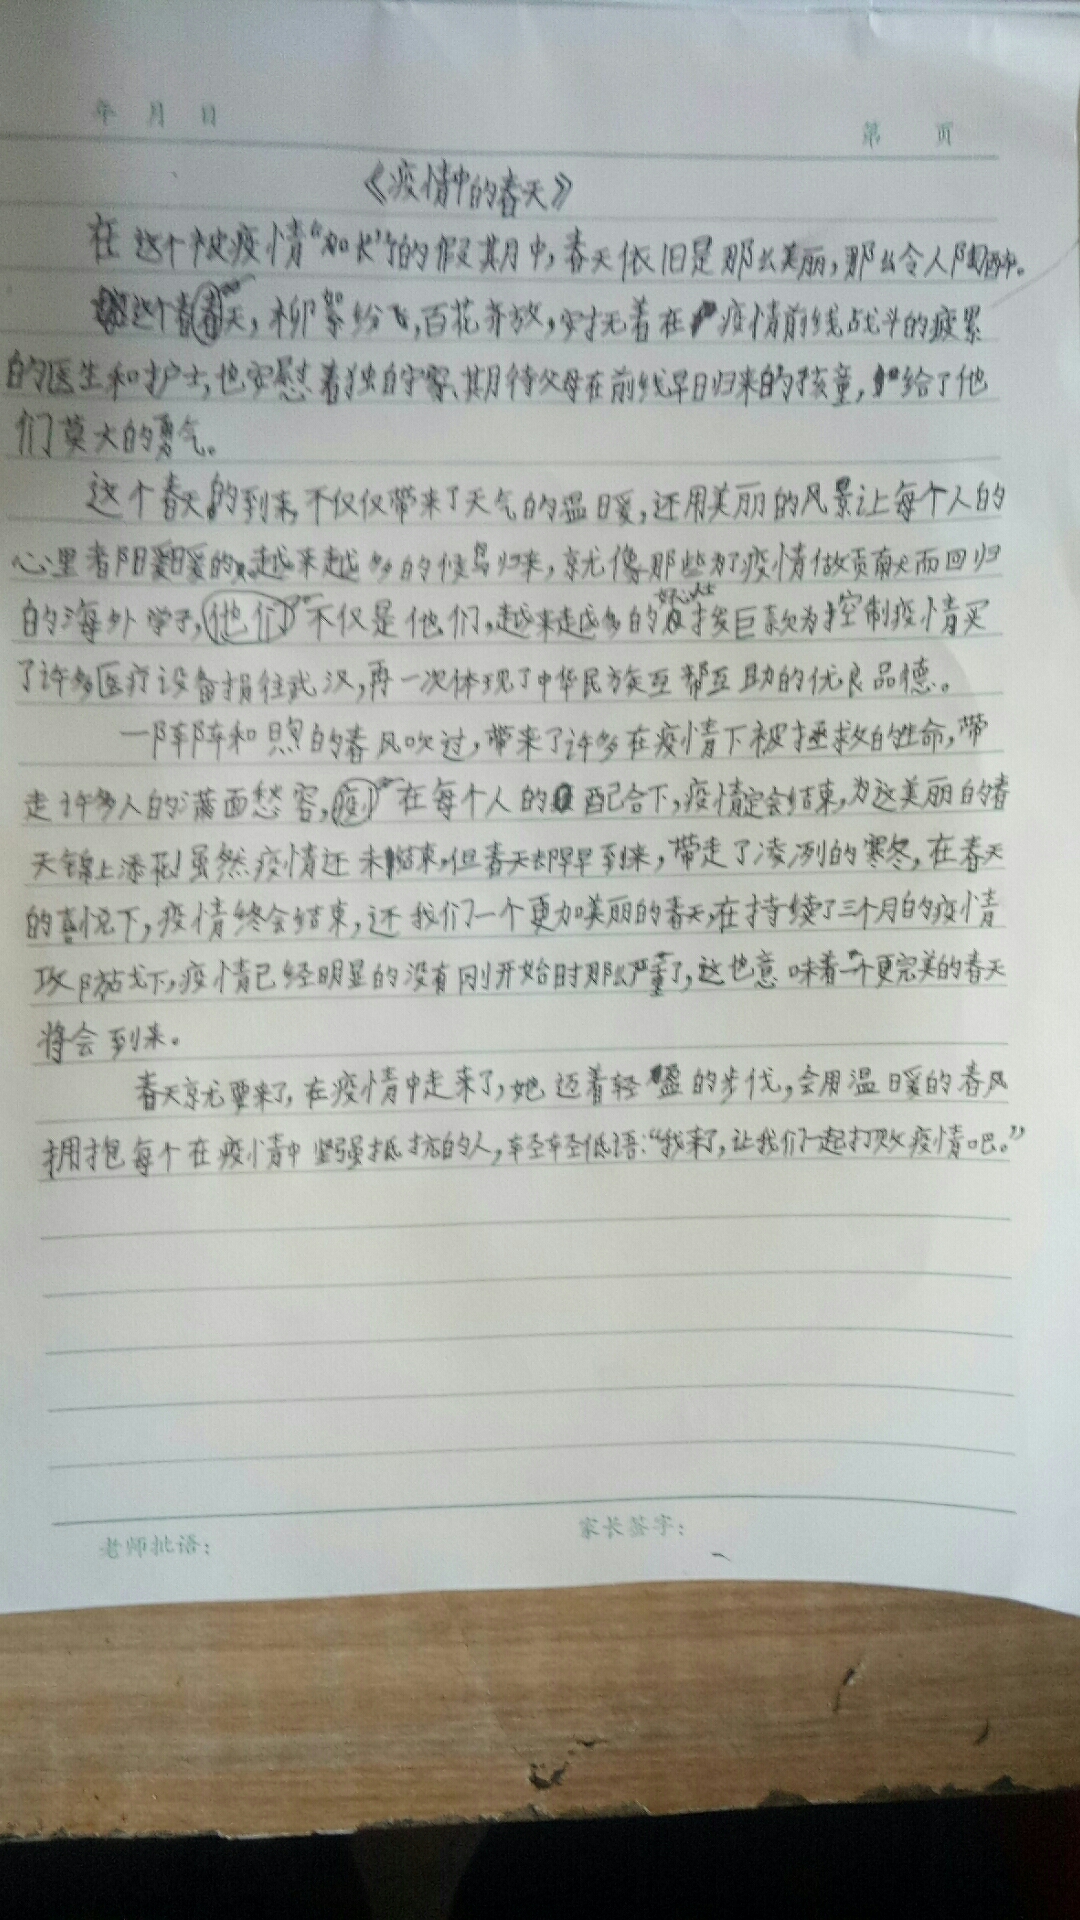 年 月 日
第 页
《疫情中的春天》
在这个被疫情“加长”的假期中,春天依旧是那么美丽,那么令人陶醉。
这个春天,柳絮纷飞,百花齐放,安抚着在疫情前线战斗的疲累
的医生和护士,也安慰着独自守家、期待父母在前线早日归来的孩童,给了他
们莫大的勇气。
这个春天的到来,不仅仅带来了天气的温暖,还用美丽的风景让每个人的
心里都暖暖的,越来越多的候鸟归来,就像那些为了疫情做贡献而回归
的海外学子,不仅是他们,越来越多的好心人士拨巨款为控制疫情买
了许多医疗设备捐往武汉,再一次体现了中华民族互帮互助的优良品德。
一阵阵和煦的春风吹过,带来了许多在疫情下被拯救的生命,带
走许多人的满面愁容,在每个人的配合下,疫情定会结束,为这美丽的春
天锦上添花!虽然疫情还未结束,但春天却早早到来,带走了凌冽的寒冬,在春天
的喜悦下,疫情终会结束,还我们一个更加美丽的春天,在持续了三个月的疫情
攻防战下,疫情已经明显的没有刚开始时那么严重了,这也意味着一个更完美的春天
将会到来。
春天就要来了,在疫情中走来了,她迈着轻盈的步伐,会用温暖的春风
拥抱每个在疫情中坚强抵抗的人,轻轻低语:“我来了,让我们一起打败疫情吧。”
老师批语:
家长签字: